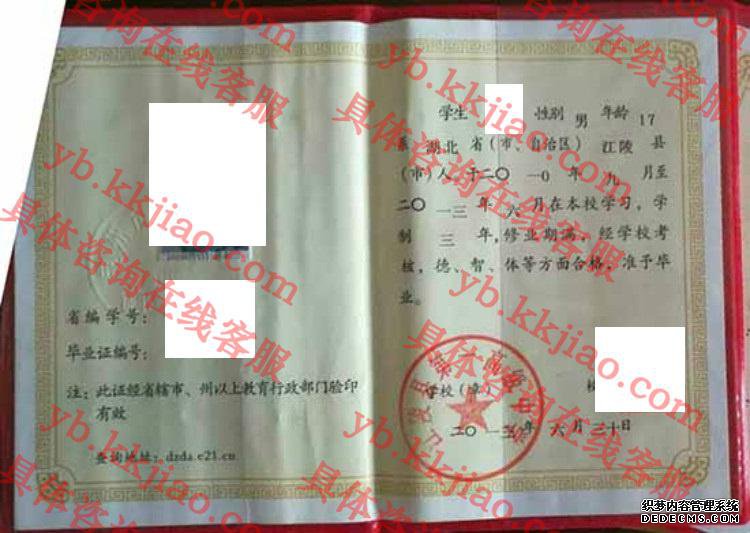 省编学号：
毕业证编号：
注：此证经省辖市、州以上教育行政部门验印
有效
查询地址：dzda.e21.cn
学生 性别 男 年龄 17
系 湖北 省（市、自治区） 江陵 县
（市）人 于二〇一0 年 九 月至
二〇一三 年 六 月在本校学习，学
制 三 年，修业期满，经学校考
核，德、智、体等方面合格，准予毕
业。
学校（章）
二〇一三年 六 月 三十日
具体咨询在线客服
yb.kkjiao.com
具体咨询在线客服
yb.kkjiao.com
具体咨询在线客服
yb.kkjiao.com
具体咨询在线客服
yb.kkjiao.com
织梦内容管理系统
DEDECMS.COM